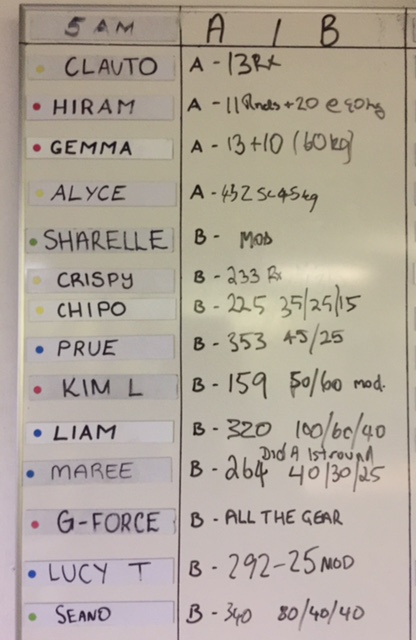 5 AM A / B
CLAUTO A - 13 Rx
HIRAM A - 11 Rnds + 20 @ 40kg
GEMMA A - 13 + 10 (60kg)
ALYCE A - 432 Sc 45kg
SHARELLE B - MOD
CRISPY B - 233 Rx
CHIPO B - 225 35/25/15
PRUE B - 353 45/25
KIM L B - 159 50/60 mod.
LIAM B - 320 100/60/40
Did A 1st round
MAREE B - 264 40/30/25
G-FORCE B - ALL THE GEAR
LUCY T B - 292 - 25 MOD
SEANO B - 340 80/40/40